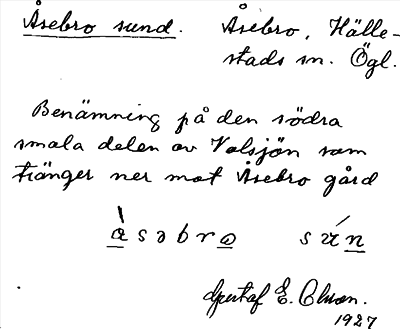 Åsebro sund. Åsebro, Hälle-
stads sn. Ögl.
Benämning på den södra
smala delen av Valsjön som
tränger ner mot Åsebro gård
Gustaf E. Olsson.
1927